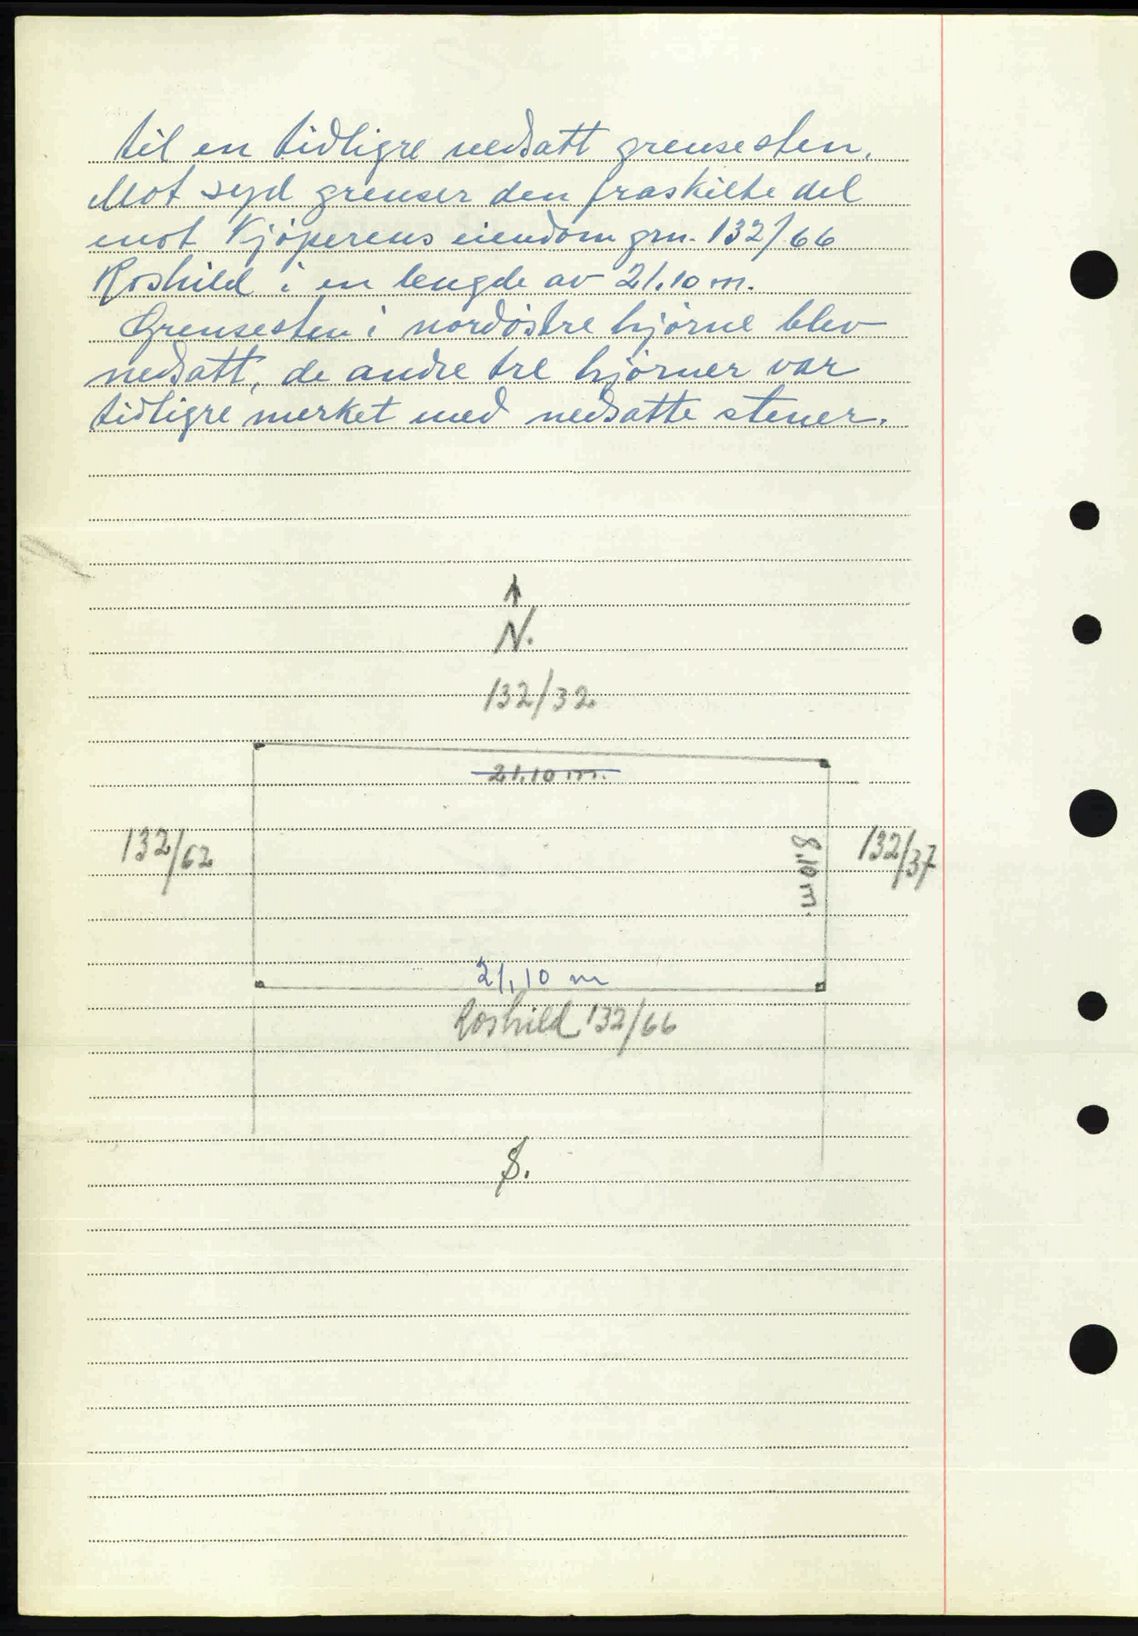 til en tidligre nedsatt grensesten.
Mot syd grenser den fraskilte del
mot Kjøperens eiendom grn. 132/66
Roshild i en lengde av 21.10 m.
Grensesten i nordøstre hjørne blev
nedsatt, de andre tre hjørner var
tidligre merket med nedsatte stener.
N.
132/32
21.10 m.
132/62
8.10 m.
132/37
21,10 m
Roshild 132/66
S.